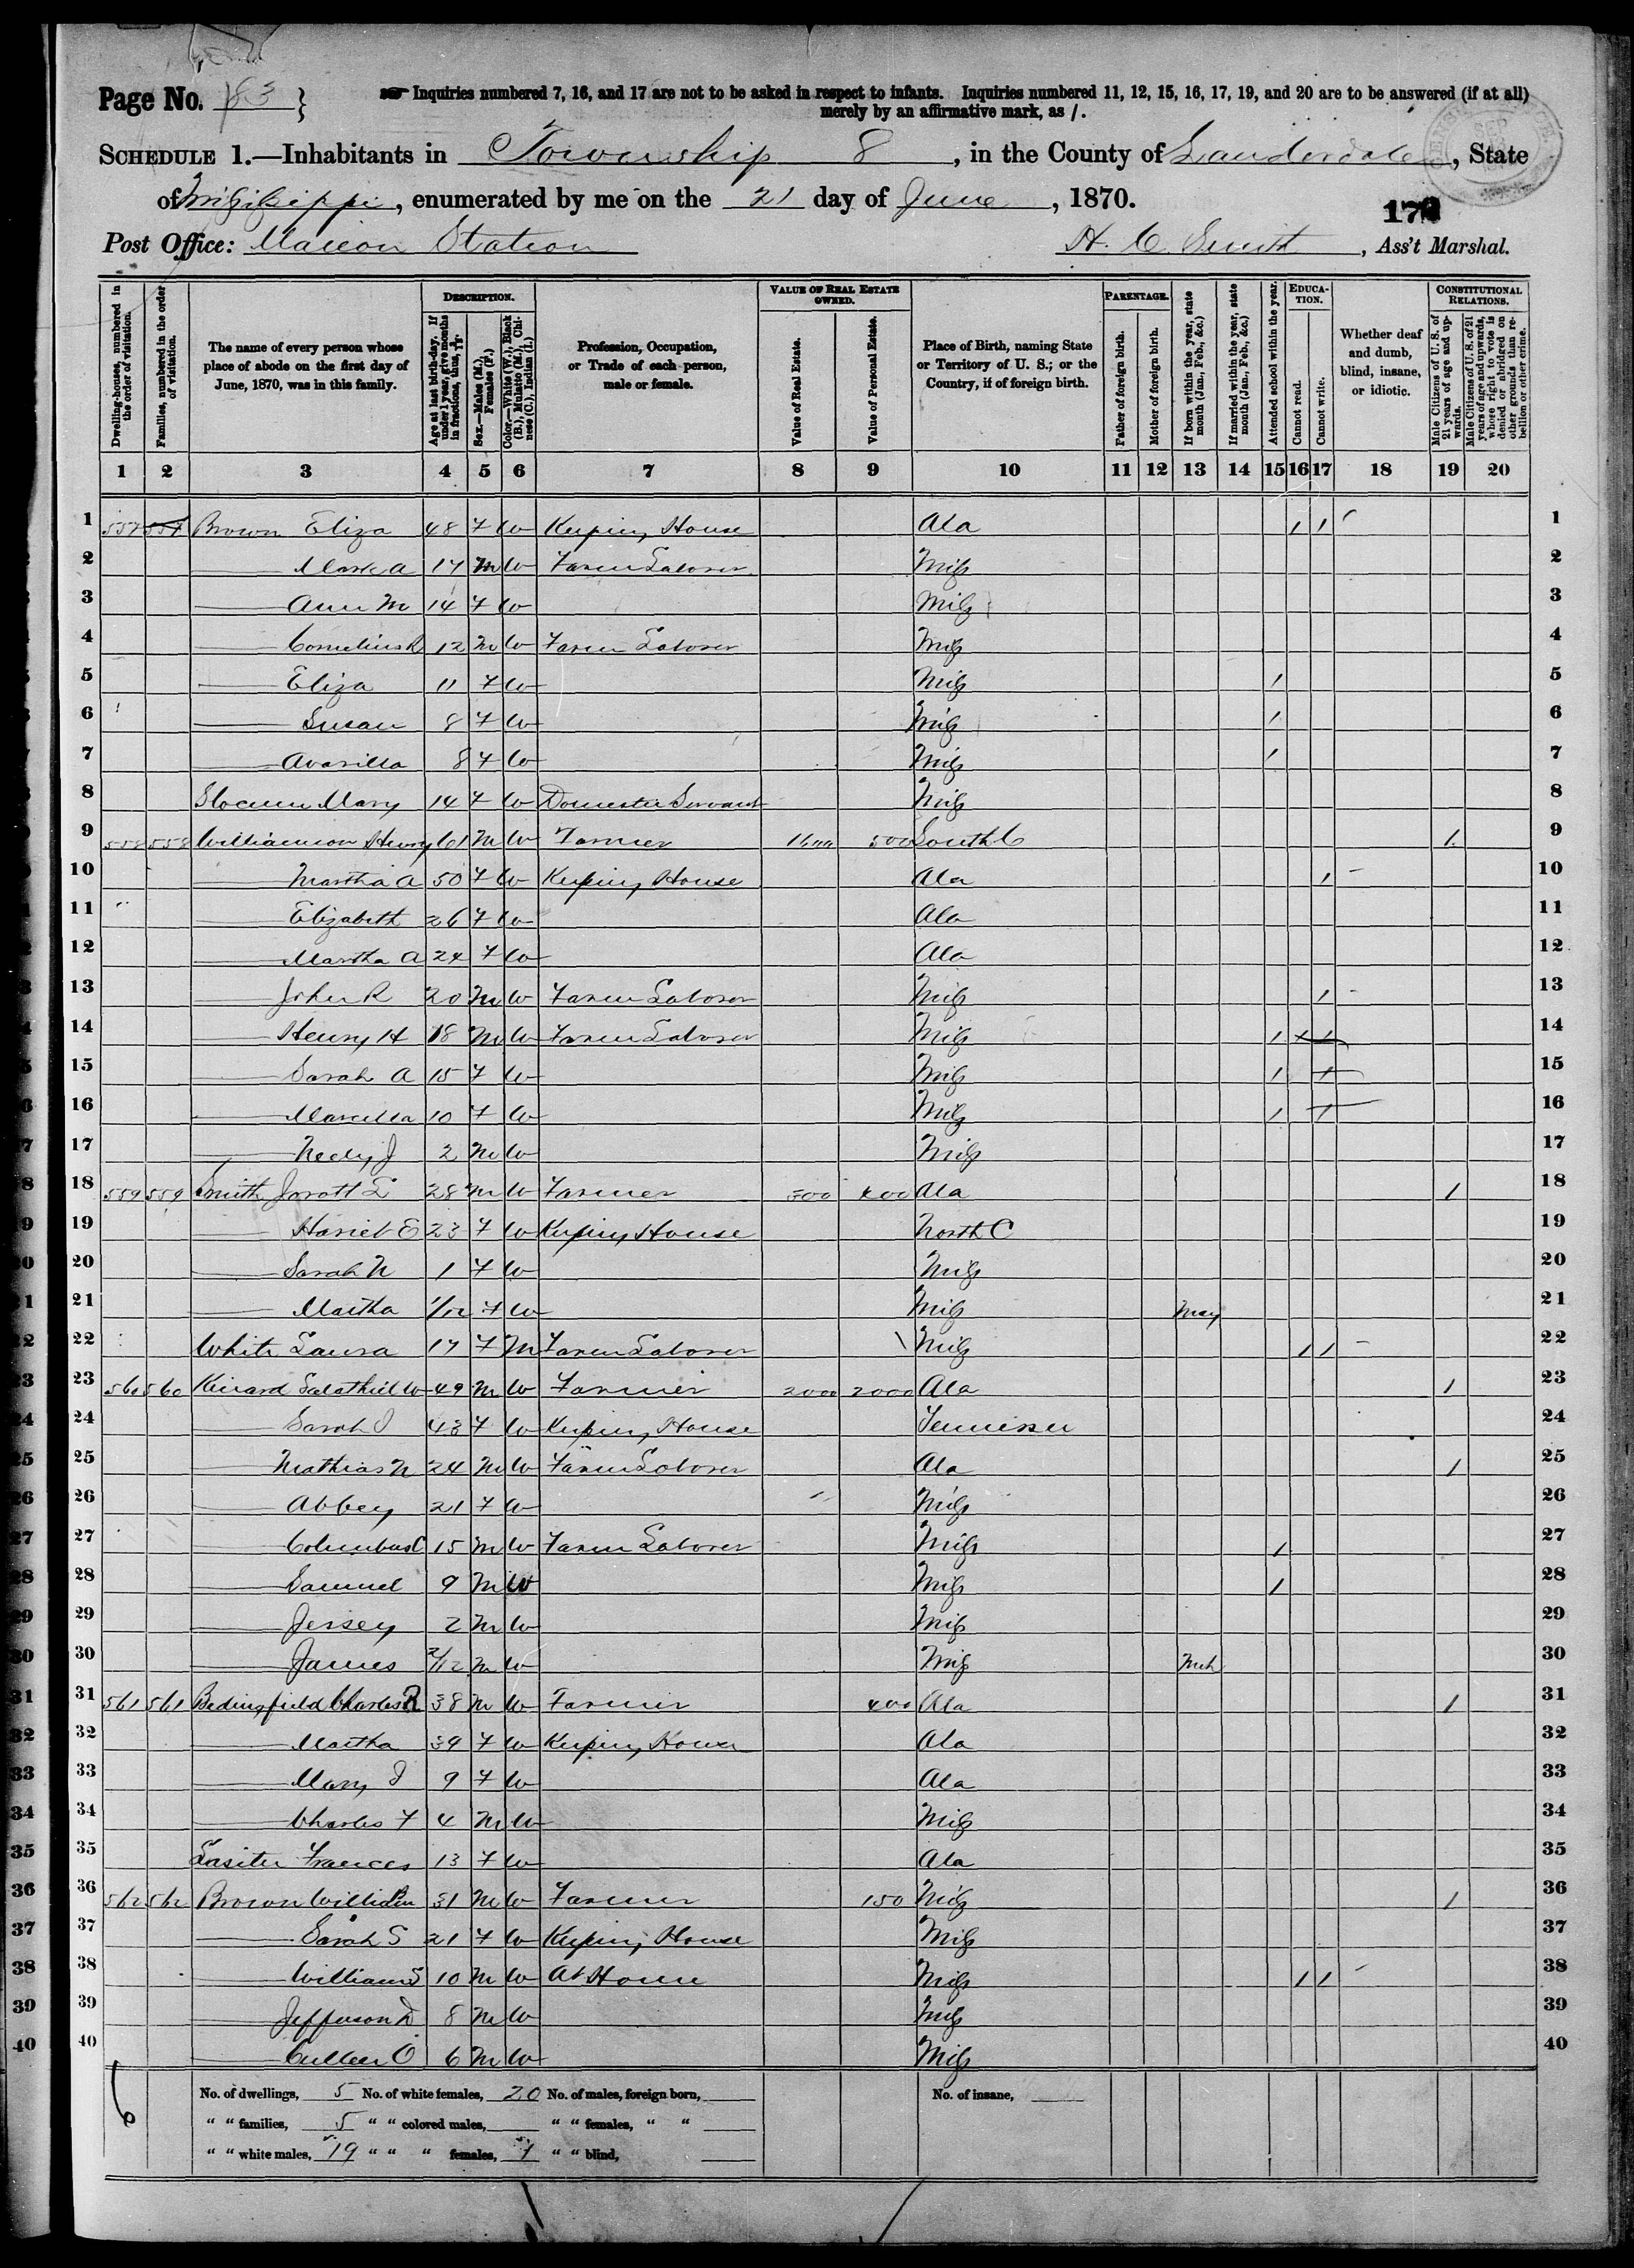 Page No. 83 }
☛ Inquiries numbered 7, 16, and 17 are not to be asked in respect to infants. Inquiries numbered 11, 12, 15, 16, 17, 19, and 20 are to be answered (if at all)
merely by an affirmative mark, as /.
SCHEDULE 1.—Inhabitants in Township 8, in the County of Lauderdale, State
of Mississippi, enumerated by me on the 21 day of June, 1870.
Post Office: Marion Station H. C. Smith, Ass't Marshal.
Dwelling-houses, numbered in the order of visitation.
Families, numbered in the order of visitation.
The name of every person whose place of abode on the first day of June, 1870, was in this family.
DESCRIPTION.
Age at last birth-day. If under 1 year, give months in fractions, thus,
Sex.—Males (M.), Females (F.)
Color.—White (W.), Black (B.), Mulatto (M.), Chinese (C.), Indian (I.)
Profession, Occupation, or Trade of each person, male or female.
VALUE OF REAL ESTATE OWNED.
Value of Real Estate.
Value of Personal Estate.
Place of Birth, naming State or Territory of U. S.; or the Country, if of foreign birth.
PARENTAGE.
Father of foreign birth.
Mother of foreign birth.
If born within the year, state month (Jan., Feb., &c.)
If married within the year, state month (Jan., Feb., &c.)
Attended school within the year.
EDUCATION.
Cannot read.
Cannot write.
Whether deaf and dumb, blind, insane, or idiotic.
CONSTITUTIONAL RELATIONS.
Male Citizens of U. S. of 21 years of age and upwards.
Male Citizens of U. S. of 21 years of age and upwards, whose right to vote is denied or abridged on other grounds than rebellion or other crime.
1 2 3 4 5 6 7 8 9 10 11 12 13 14 15 16 17 18 19 20
1 557 557 Brown Eliza 48 F W Keeping House Ala / / 1
2 —— Mark A 17 M W Farm Laborer Miss 2
3 —— Ann M 14 F W Miss 3
4 —— Cornelius R 12 M W Farm Laborer Miss 4
5 —— Eliza 11 F W Miss / 5
6 —— Susan 8 F W Miss / 6
7 —— Avarilla 8 F W Miss / 7
8 Slocum Mary 14 F W Domestic Servant Miss 8
9 558 558 Williamson Henry 61 M W Farmer 1600 500 South C / 9
10 —— Martha A 50 F W Keeping House Ala / 10
11 —— Elizabeth 26 F W Ala 11
12 —— Martha A 24 F W Ala 12
13 —— John R 20 M W Farm Laborer Miss / 13
14 —— Henry H 18 M W Farm Laborer Miss / / / 14
15 —— Sarah A 15 F W Miss / / 15
16 —— Marcella 10 F W Miss / / 16
17 —— J 2 M W Miss 17
18 559 559 Smith Jarott L 28 M W Farmer 500 400 Ala / 18
19 —— Hariet E 23 F W Keeping House North C 19
20 —— Sarah N 1 F W Miss 20
21 —— Martha 1/12 F W Miss May 21
22 White Laura 17 F M Farm Laborer Miss / / 22
23 560 560 Kinard Salathiel W 49 M W Farmer 2000 2000 Ala / 23
24 —— Sarah J 43 F W Keeping House Tennessee 24
25 —— Mathias N 24 M W Farm Laborer Ala / 25
26 —— Abbey 21 F W Miss 26
27 —— Columbus C 15 M W Farm Laborer Miss / 27
28 —— Samuel 9 M W Miss / 28
29 —— Jersey 2 M W Miss 29
30 —— James 2/12 M W Miss Mch 30
31 561 561 Bedingfield Charles R 38 M W Farmer 400 Ala / 31
32 —— Martha 39 F W Keeping House Ala 32
33 —— Mary J 9 F W Ala 33
34 —— Charles F 4 M W Miss 34
35 Lasiter Frances 13 F W Ala 35
36 562 562 Brown William 31 M W Farmer 150 Miss / 36
37 —— Sarah S 21 F W Keeping House Miss 37
38 —— William S 10 M W At Home Miss / / 38
39 —— Jefferson D 8 M W Miss 39
40 —— Cullen O 6 M W Miss 40
No. of dwellings, 5 No. of white females, 20 No. of males, foreign born, No. of insane,
" " families, 5 " " colored males, " " females, " "
" " white males, 19 " " " females, 1 " " blind,
6